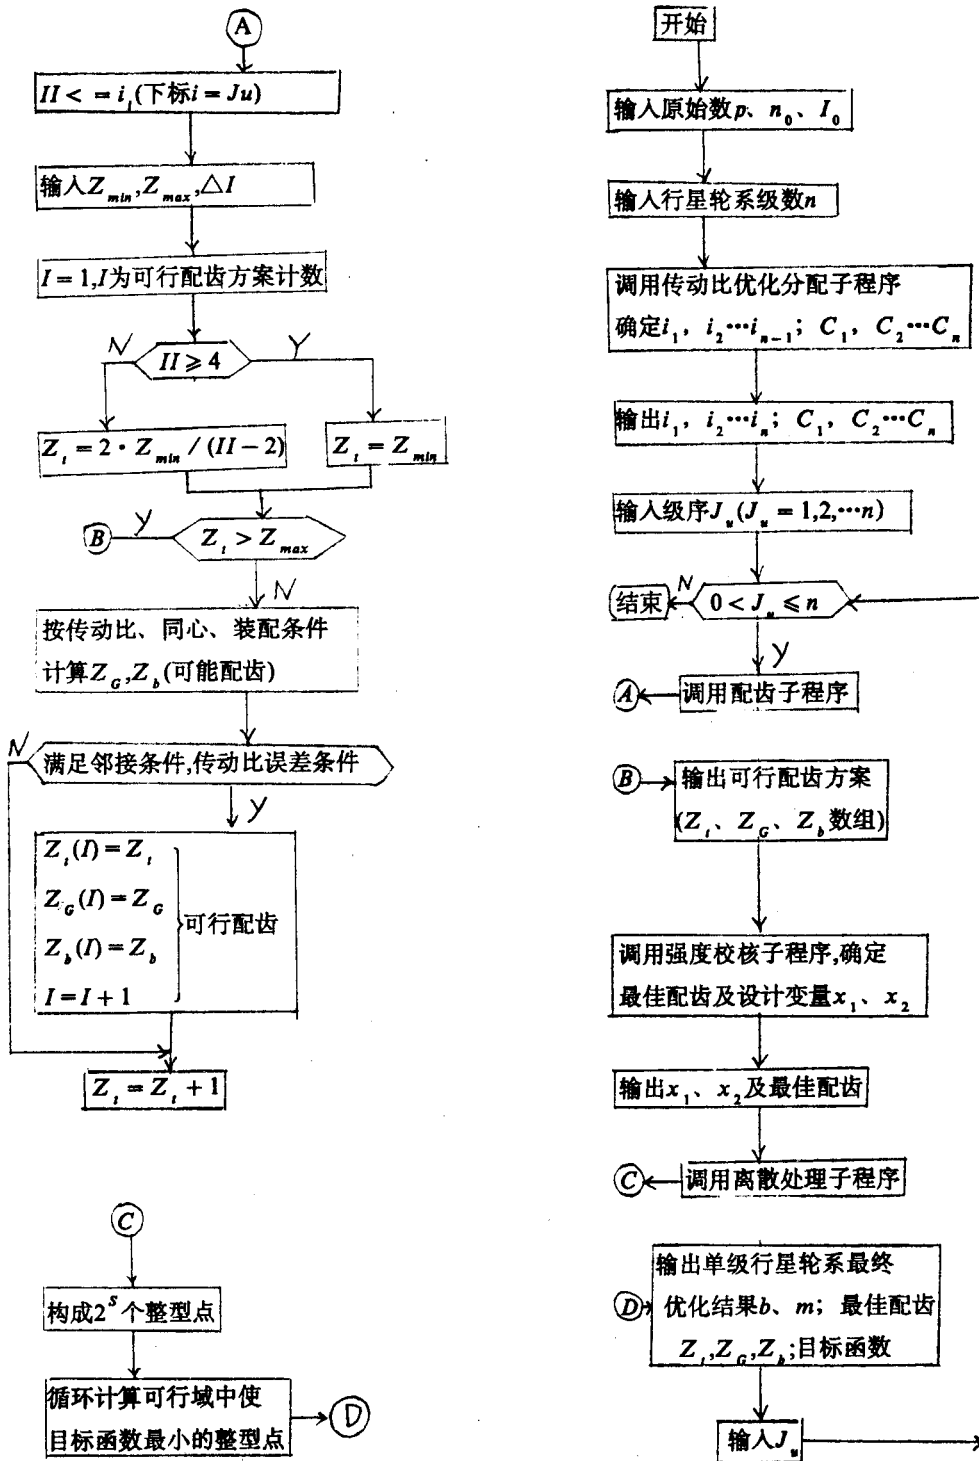 A
II < = i_i(下标i = Ju)
输入Z_min,Z_max,△I
I = 1,I为可行配齿方案计数
N
II ≥ 4
Y
Z_t = 2 · Z_min / (II − 2)
Z_t = Z_min
B
Y
Z_t > Z_max
N
按传动比、同心、装配条件
计算Z_G,Z_b(可能配齿)
N
满足邻接条件,传动比误差条件
Y
Z_t(I) = Z_t
Z_G(I) = Z_G
Z_b(I) = Z_b
I = I + 1
可行配齿
Z_t = Z_t + 1
C
构成2^S个整型点
循环计算可行域中使
目标函数最小的整型点
D
开始
输入原始数p、n_0、I_0
输入行星轮系级数n
调用传动比优化分配子程序
确定i_1, i_2…i_n−1; C_1, C_2…C_n
输出i_1, i_2…i_n; C_1, C_2…C_n
输入级序J_u(J_u = 1,2,…n)
结束
N
0 < J_u ≤ n
Y
A
调用配齿子程序
B
输出可行配齿方案
(Z_t、Z_G、Z_b数组)
调用强度校核子程序,确定
最佳配齿及设计变量x_1、x_2
输出x_1、x_2及最佳配齿
C
调用离散处理子程序
D
输出单级行星轮系最终
优化结果b、m; 最佳配齿
Z_t,Z_G,Z_b;目标函数
输入J_u